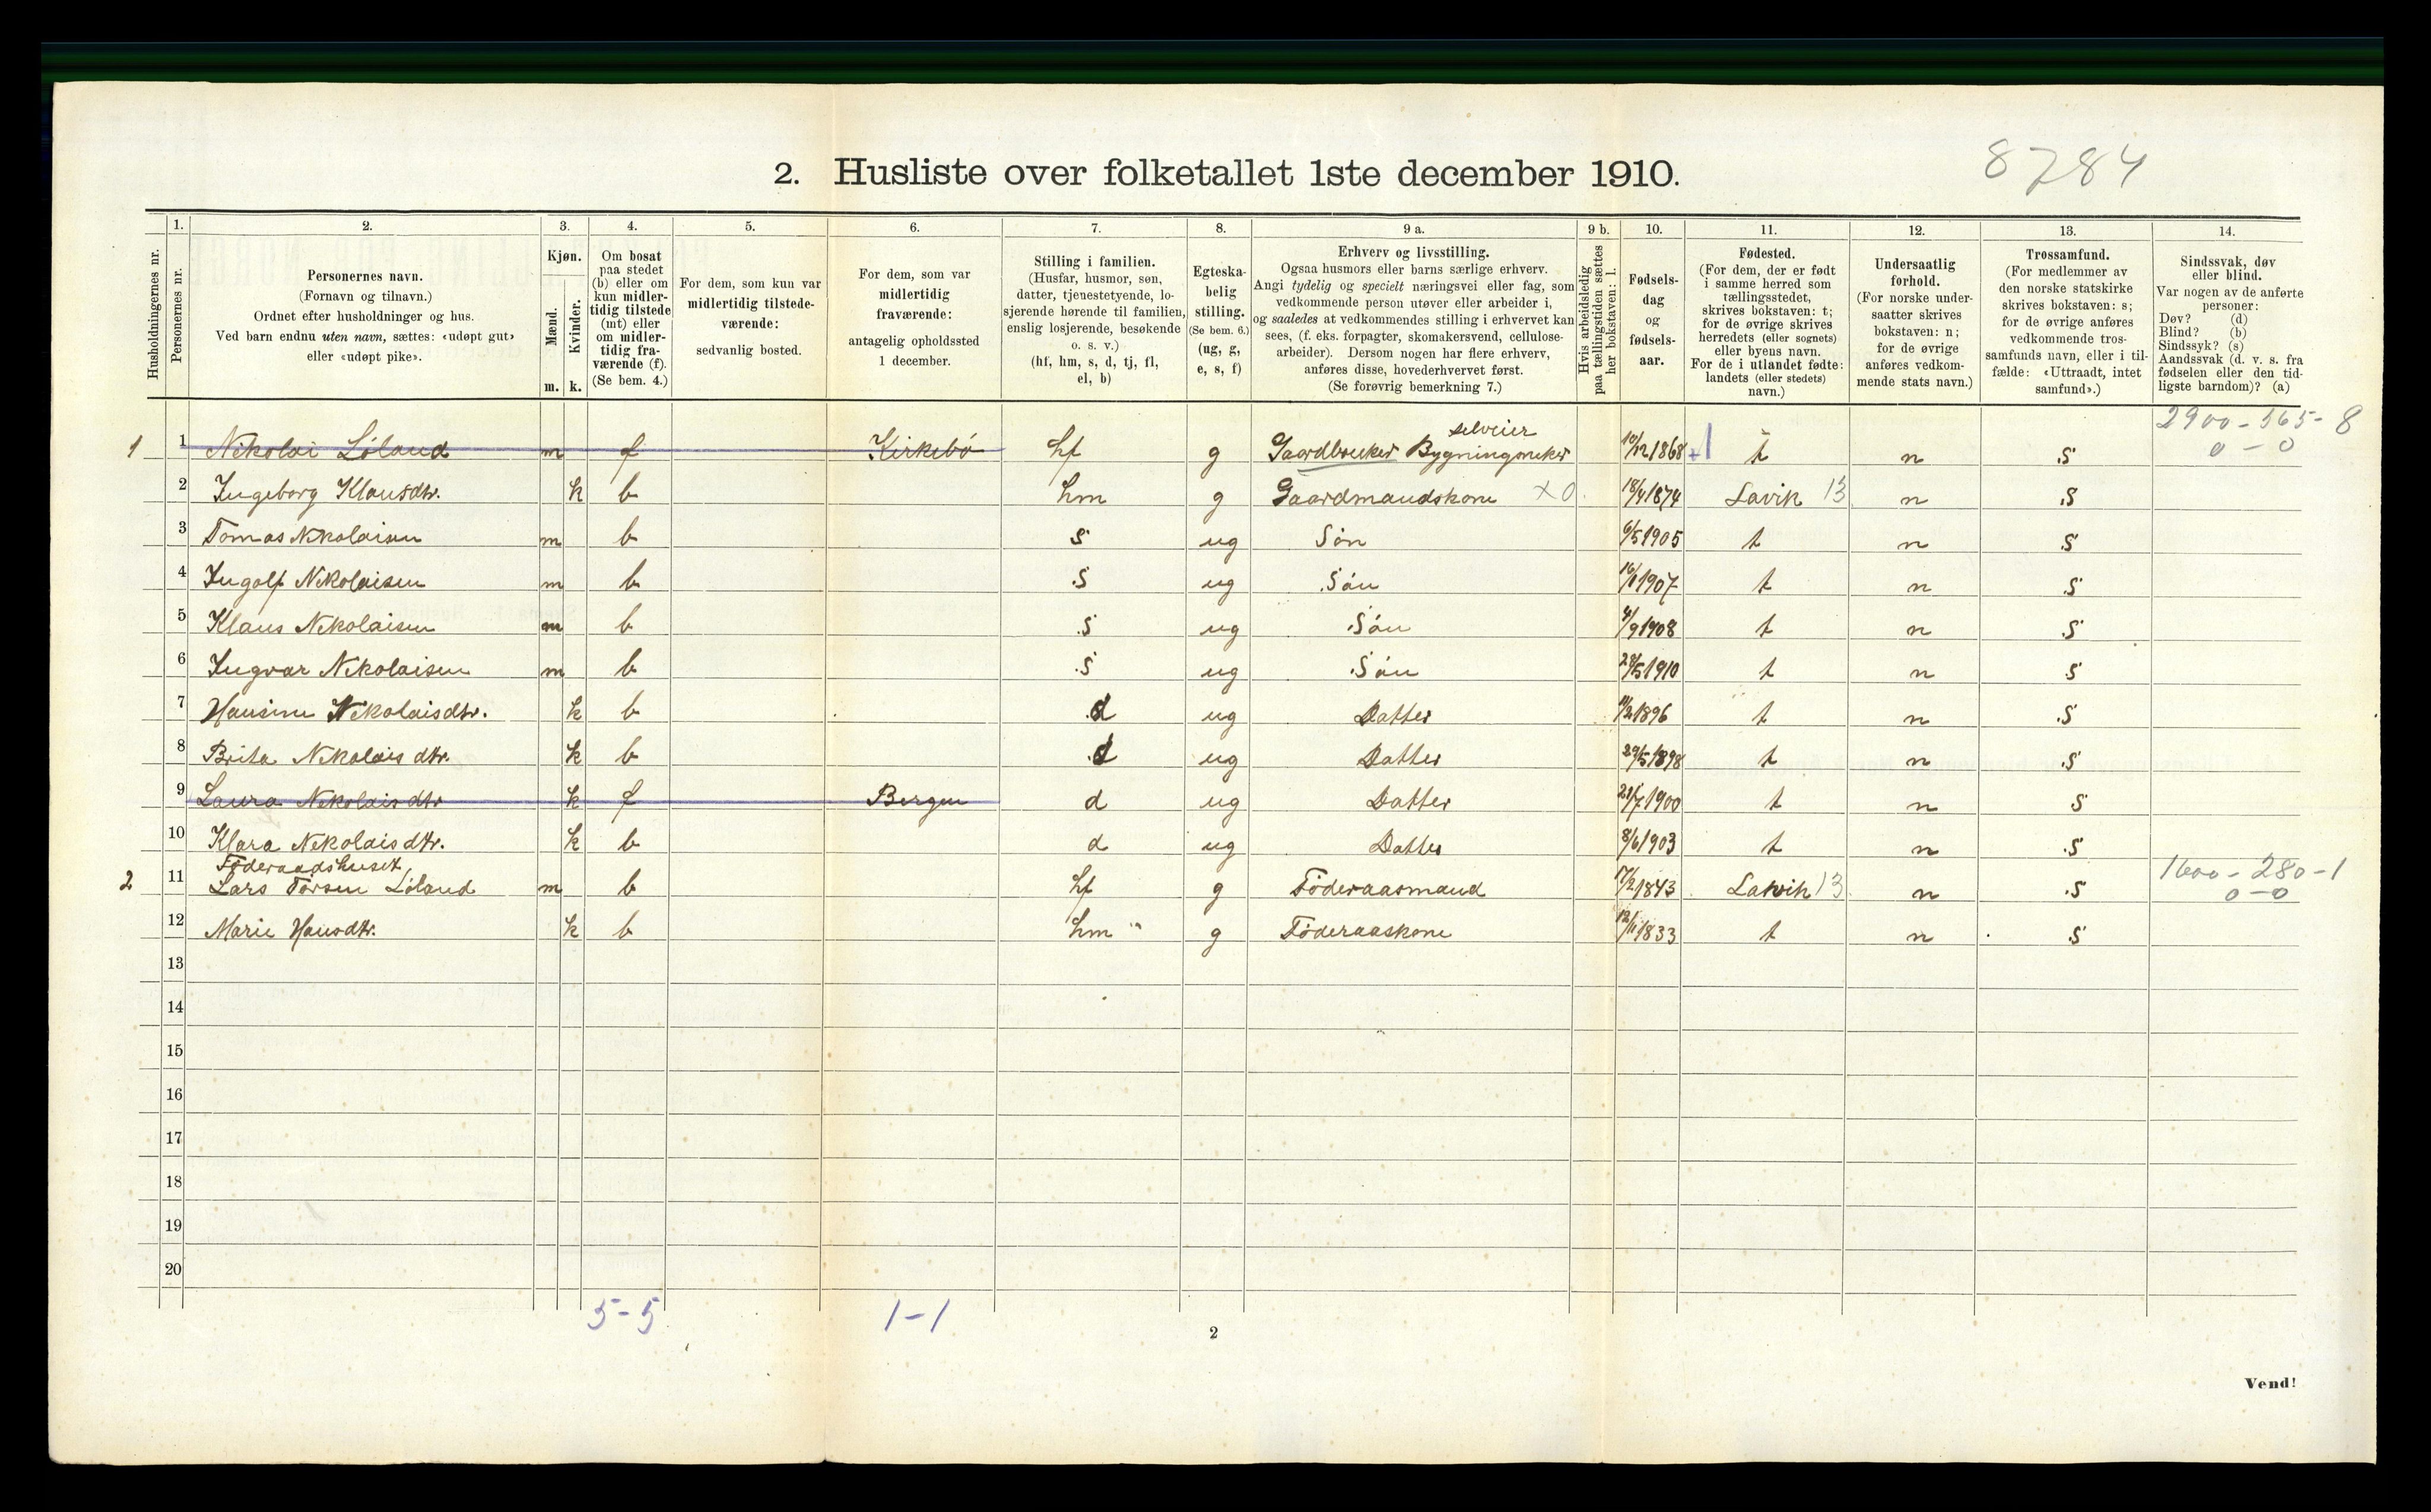 8784
2. Husliste over folketallet 1ste december 1910.
Husholdningernes nr.
1.
Personernes nr.
2.
Personernes navn.
(Fornavn og tilnavn.)
Ordnet efter husholdninger og hus.
Ved barn endnu uten navn, sættes: «udøpt gut»
eller «udøpt pike».
3.
Kjøn.
Mænd.
m.
Kvinder.
k.
4.
Om bosat
paa stedet
(b) eller om
kun midler-
tidig tilstede
(mt) eller
om midler-
tidig fra-
værende (f).
(Se bem. 4.)
5.
For dem, som kun var
midlertidig tilstede-
værende:
sedvanlig bosted.
6.
For dem, som var
midlertidig
fraværende:
antagelig opholdssted
1 december.
7.
Stilling i familien.
(Husfar, husmor, søn,
datter, tjenestetyende, lo-
sjerende hørende til familien,
enslig losjerende, besøkende
o. s. v.)
(hf, hm, s, d, tj, fl,
el, b)
8.
Egteska-
belig
stilling.
(Se bem. 6.)
(ug, g,
e, s, f)
9 a.
Erhverv og livsstilling.
Ogsaa husmors eller barns særlige erhverv.
Angi tydelig og specielt næringsvei eller fag, som
vedkommende person utøver eller arbeider i,
og saaledes at vedkommendes stilling i erhvervet kan
sees, (f. eks. forpagter, skomakersvend, cellulose-
arbeider). Dersom nogen har flere erhverv,
anføres disse, hovederhvervet først.
(Se forøvrig bemerkning 7.)
9 b.
Hvis arbeidsledig
paa tællingstiden sættes
her bokstaven: l.
10.
Fødsels-
dag
og
fødsels-
aar.
11.
Fødested.
(For dem, der er født
i samme herred som
tællingsstedet,
skrives bokstaven: t;
for de øvrige skrives
herredets (eller sognets)
eller byens navn.
For de i utlandet fødte:
landets (eller stedets)
navn.)
12.
Undersaatlig
forhold.
(For norske under-
saatter skrives
bokstaven: n;
for de øvrige
anføres vedkom-
mende stats navn.)
13.
Trossamfund.
(For medlemmer av
den norske statskirke
skrives bokstaven: s;
for de øvrige anføres
vedkommende tros-
samfunds navn, eller i til-
fælde: «Uttraadt, intet
samfund».)
14.
Sindssvak, døv
eller blind.
Var nogen av de anførte
personer:
Døv? (d)
Blind? (b)
Sindssyk? (s)
Aandssvak (d. v. s. fra
fødselen eller den tid-
ligste barndom)? (a)
2900-565-8
selveier
1 1 Nikolai Löland m f Kirkebö hf g Gaardbruker Bygningsneker 10/12 1868 t n s 0-0
2 Ingeborg Klausdtr. k b hm g Gaardmandskone x 0 18/4 1874 Lavik 13 n s
3 Tomas Nikolaisen m b s ug Sön 6/5 1905 t n s
4 Ingolf Nikolaisen m b s ug Sön 16/1 1907 t n s
5 Klaus Nikolaisen m b s ug Sön 4/9 1908 t n s
6 Ingvar Nikolaisen m b s ug Sön 28/5 1910 t n s
7 Hansine Nikolaisdtr. k b d ug Datter 11/2 1896 t n s
8 Brita Nikolaisdtr. k b d ug Datter 29/5 1898 t n s
9 Laura Nikolaisdtr k f Bergen d ug Datter 21/7 1900 t n s
10 Klara Nikolaisdtr. k b d ug Datter 8/6 1903 t n s
Föderaadshuset, 1600-280-1
2 11 Lars Torsen Löland m b hf g Föderaasmand 17/2 1843 Lavik 13 n s 0-0
12 Marie Hansdtr. k b hm g Föderaaskone 12/1 1833 t n s
13
14
15
16
17
18
19
20
5-5 1-1
2
Vend!